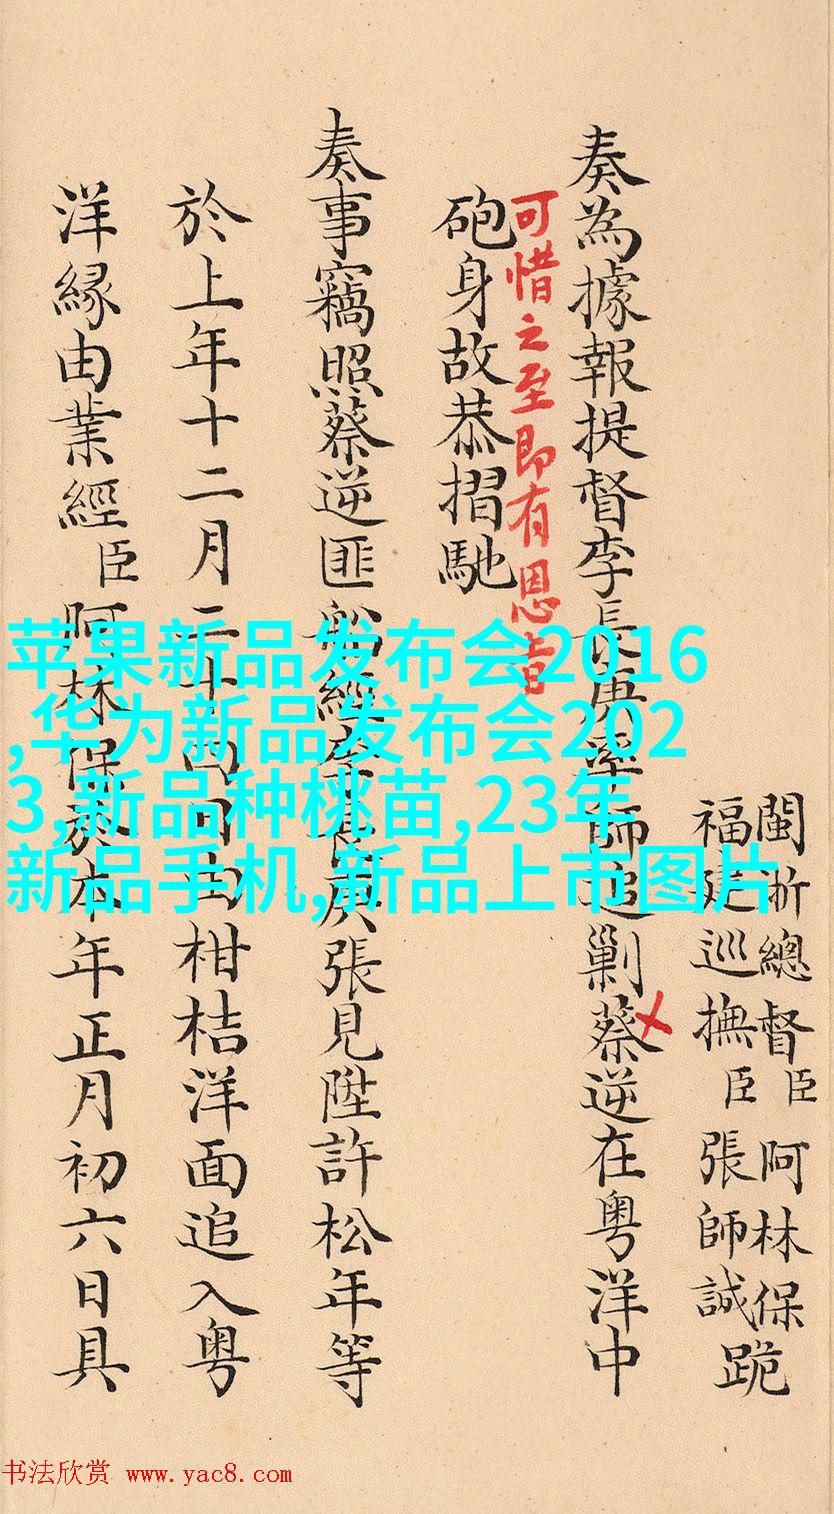 閩浙總督臣阿林保
福建巡撫臣張師誠
跪
奏為據報提督李長庚率師追剿蔡逆在粤洋中
可惜之至即有恩旨
砲身故恭摺馳
奏事竊照蔡逆匪船經李長庚張見陞許松年等
於上年十二月二十四日由柑桔洋面追入粤
洋縁由業經臣阿林保於本年正月初六日具
苹果新品发布会2016
,华为新品发布会202
3,新品种桃苗,23年
新品手机,新品上市图片
书法欣赏 www.yac8.com